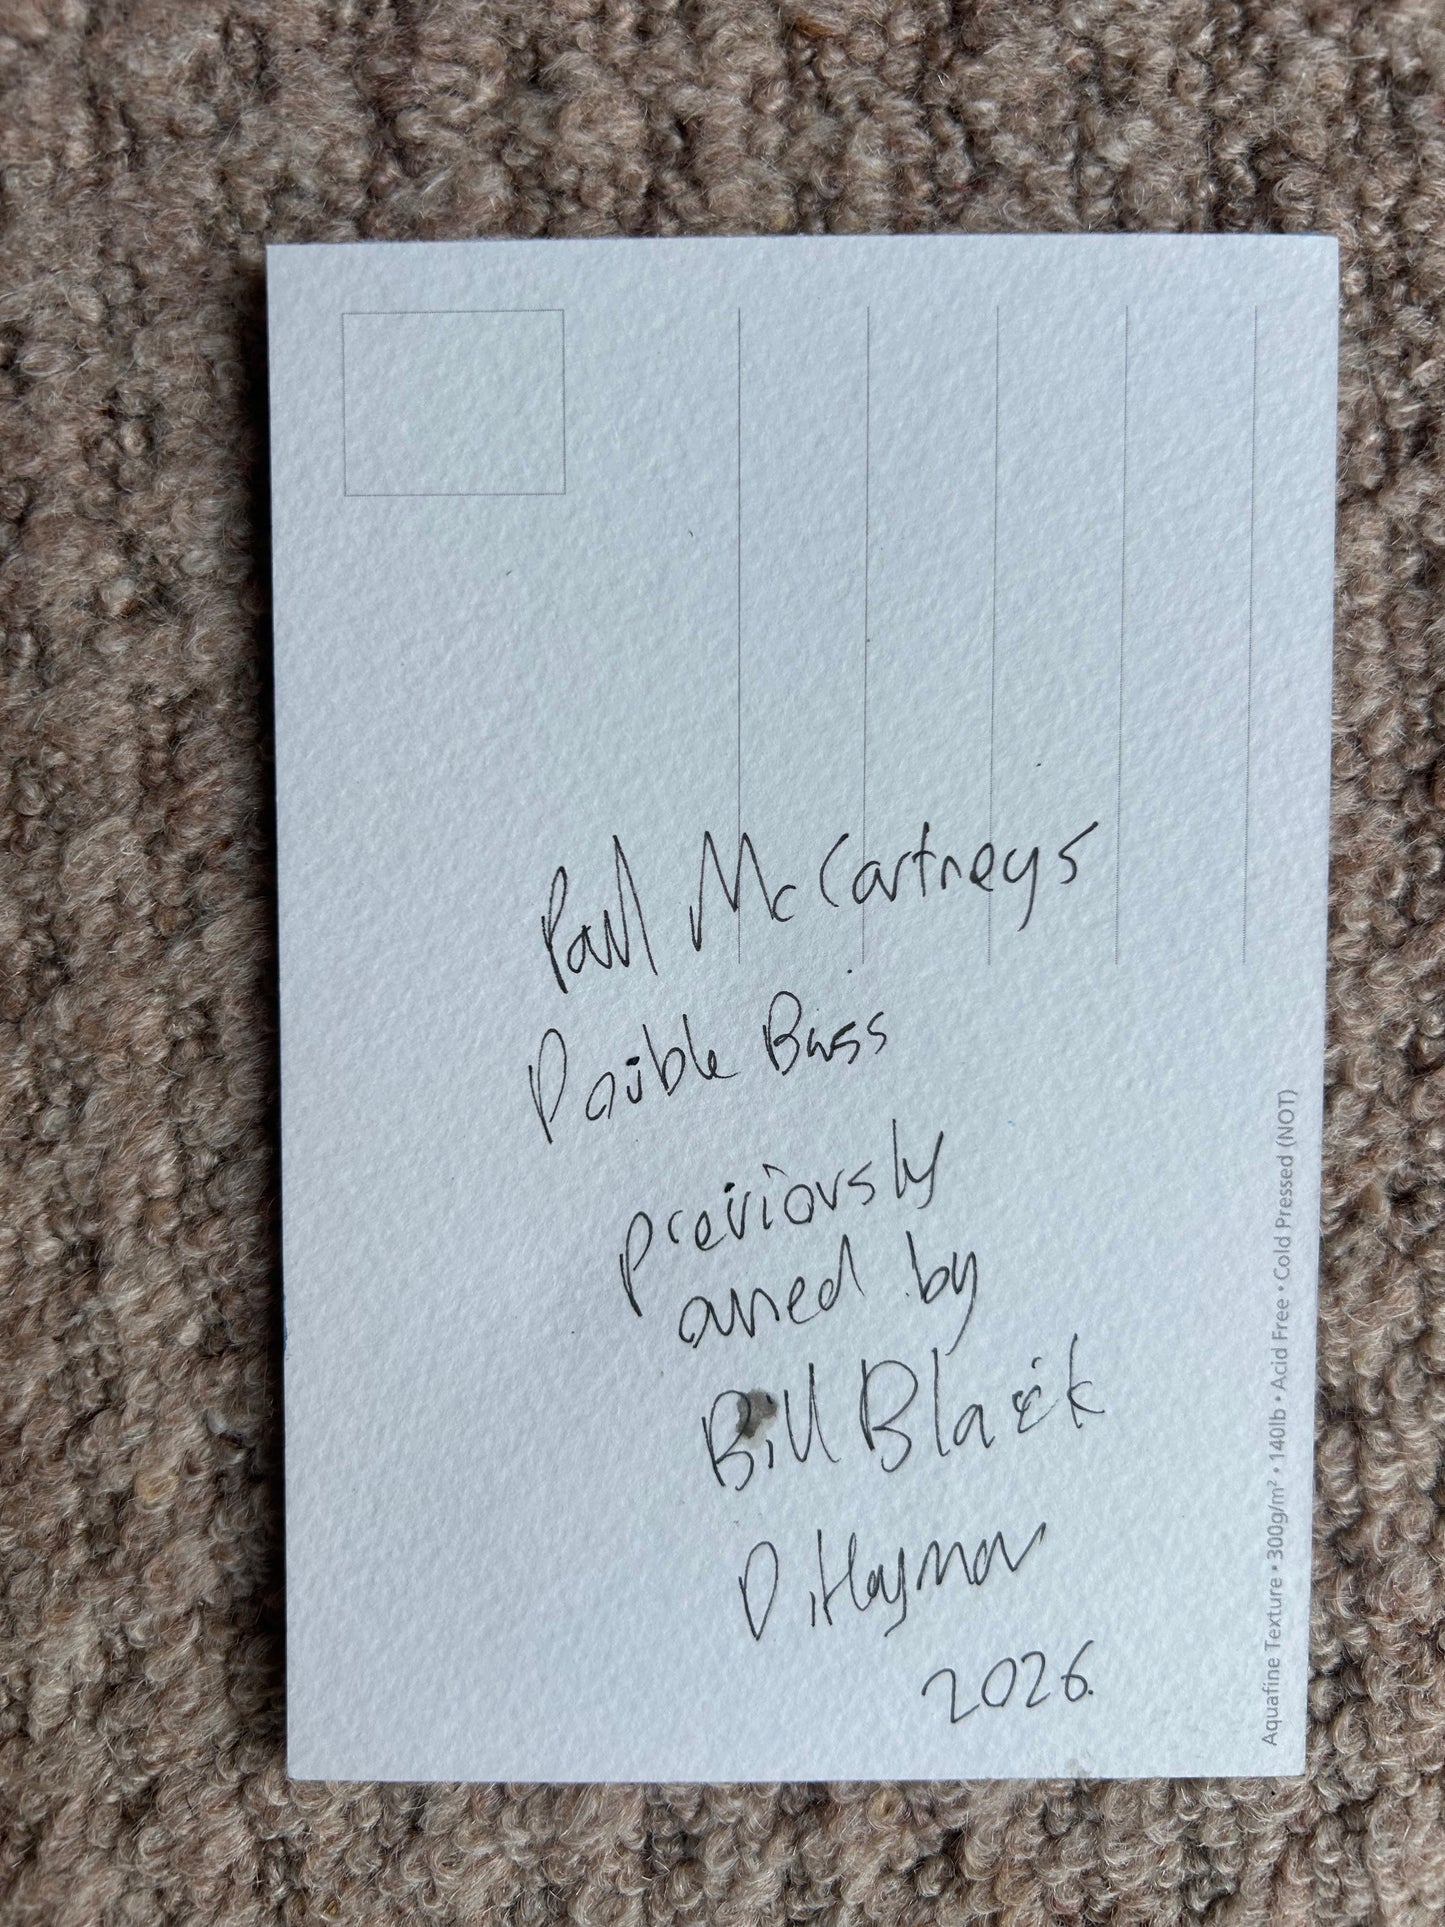 Paul McCartneys
Double Bass
previously
owned by
Bill Black
D. Hayman
2026.
Aquafine Texture • 300g/m² • 140lb • Acid Free • Cold Pressed (NOT)